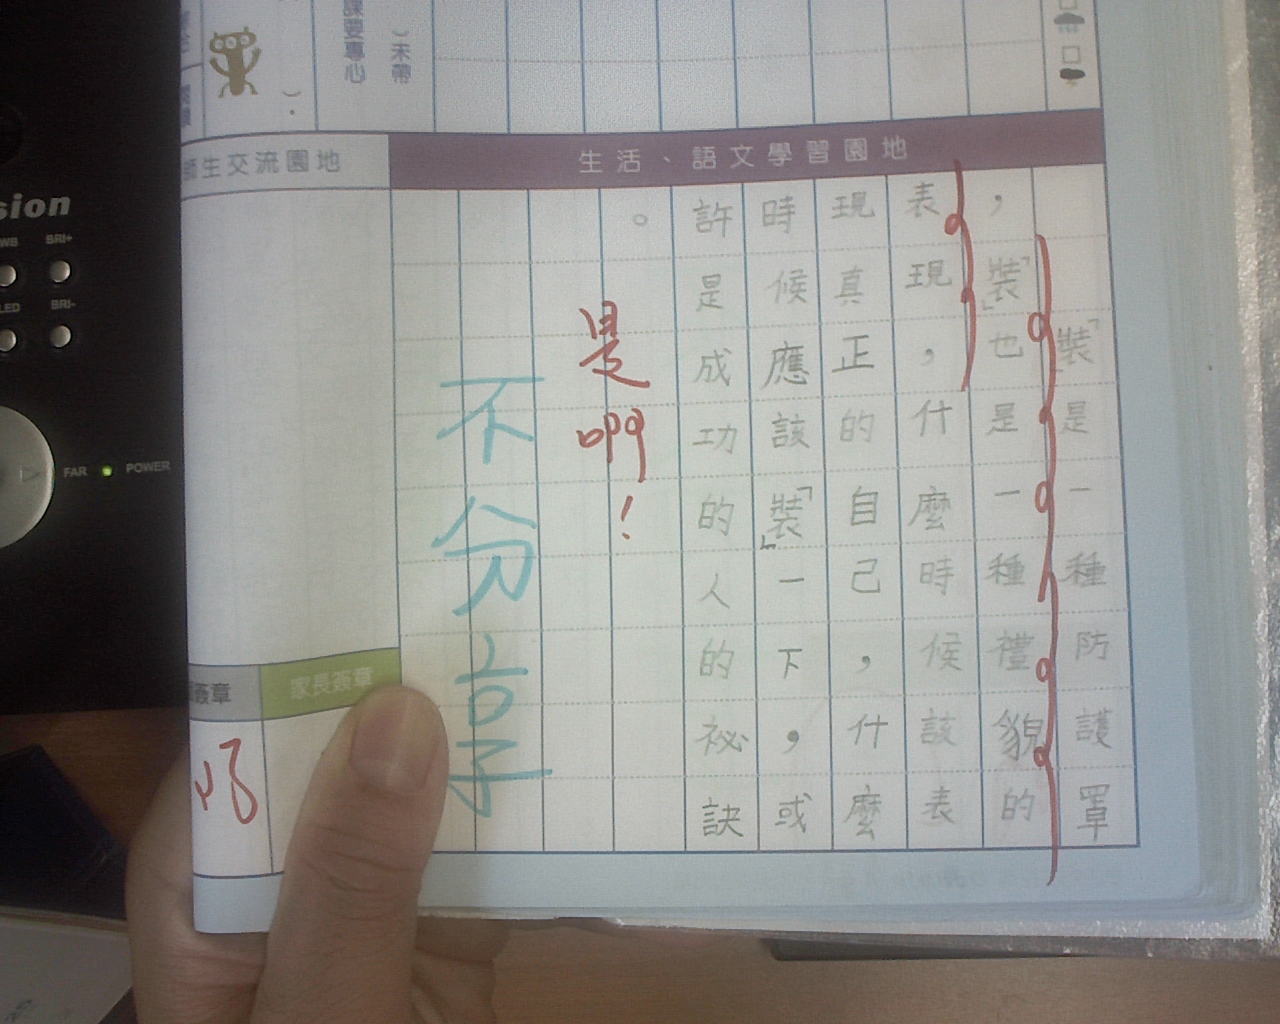 課要專心
）未帶
生活、語文學習園地
「裝」是一種防護罩
，「裝」也是一種禮貌的
表現，什麼時候該表
現真正的自己，什麼
時候應該「裝」一下，或
許是成功的人的祕訣
。
是啊！
不分享
師生交流園地
家長簽章
簽章
sion
WB
BRI+
LED
BRI-
FAR
POWER